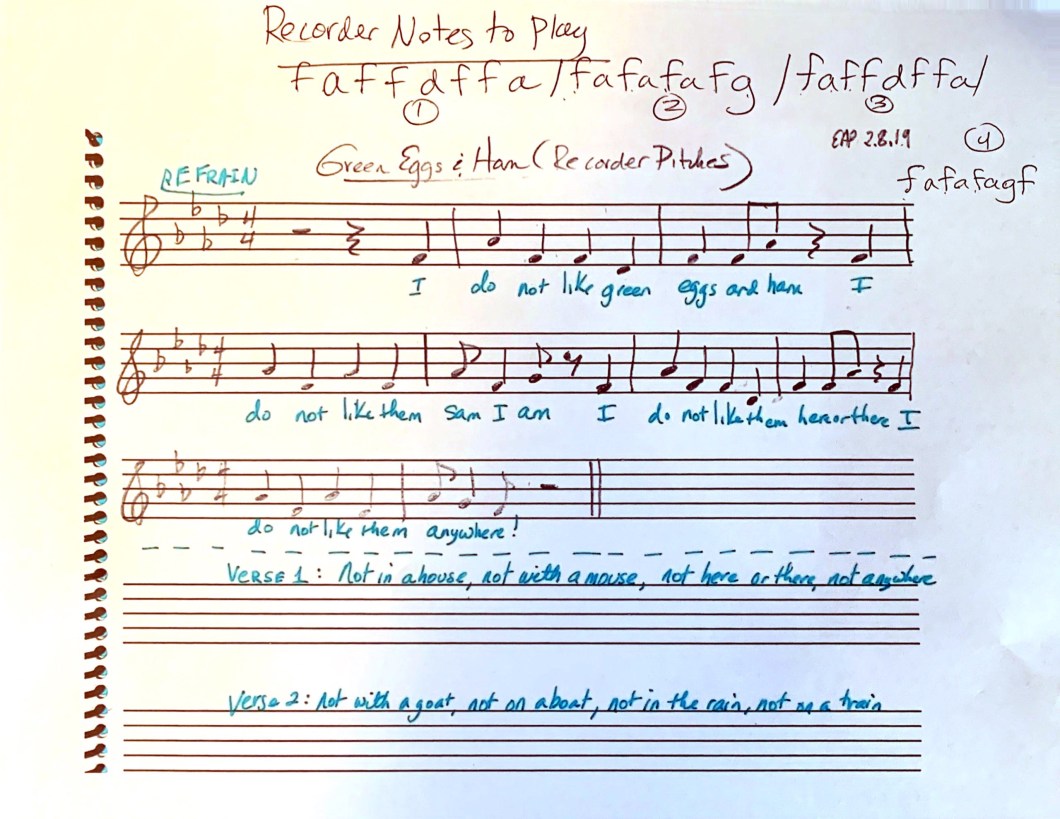 Recorder Notes to Play
faffdffa/fafafafg/faffdffa/
① ② ③
EAP 2.8.19 ④
Green Eggs & Ham (Recorder Pitches)
fafafagf
REFRAIN
4
4
I do not like green eggs and ham I
4
4
do not like them Sam I am I do not like them here or there I
4
4
do not like them anywhere!
VERSE 1: Not in a house, not with a mouse, not here or there, not anywhere
Verse 2: Not with a goat, not on a boat, not in the rain, not on a train